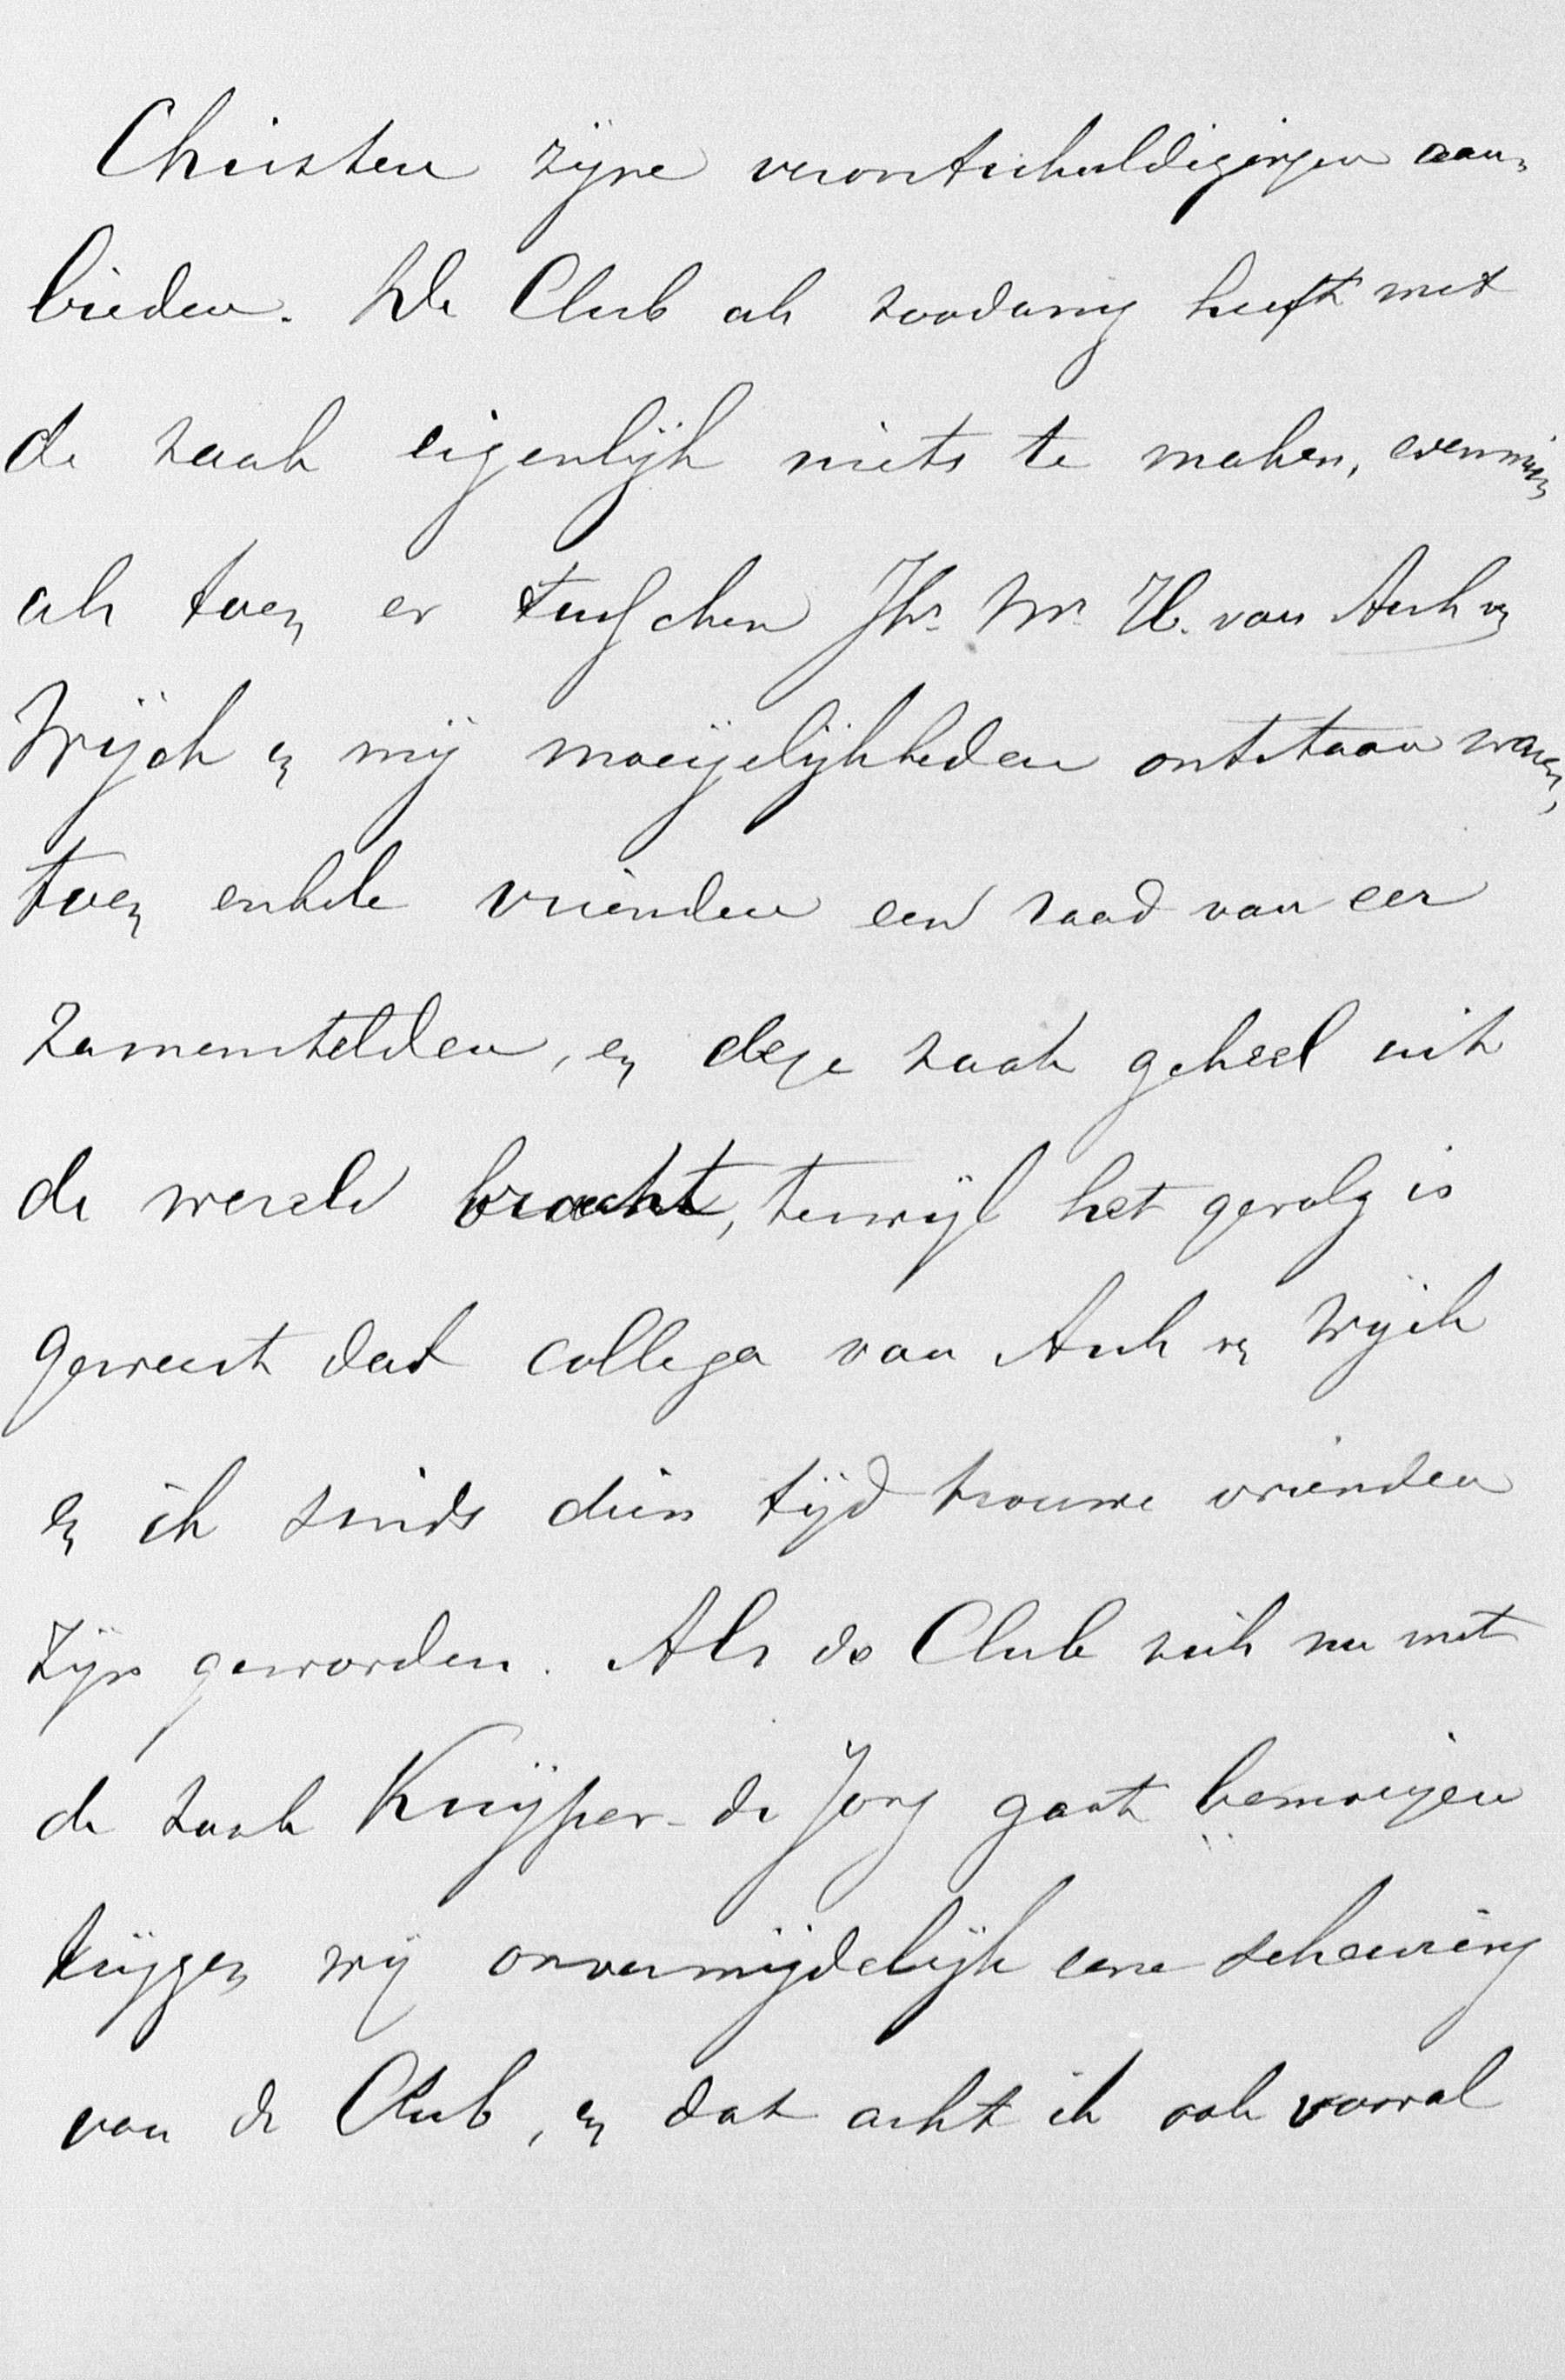 Christen zijne verontschuldigingen aan-
bieden. De Club als zoodanig heeft met
de zaak eigenlijk niets te maken, evenmin
als toen er tusschen Jhr. Mr. H. van Asch v
Wijck en mij moeijelijkheden ontstaan waren,
toen enkele vrienden een raad van eer
zamenstelden, en deze zaak geheel uit
de wereld bracht, terwijl het gevolg is
geweest dat collega van Asch v Wijck
en ik sinds dien tijd trouwe vrienden
zijn geworden. Als de Club zich nu met
de zaak Kuijper - de Jong gaat bemoeijen
krijgen wij onvermijdelijk eene scheuring
van de Club, en dat acht ik ook vooral